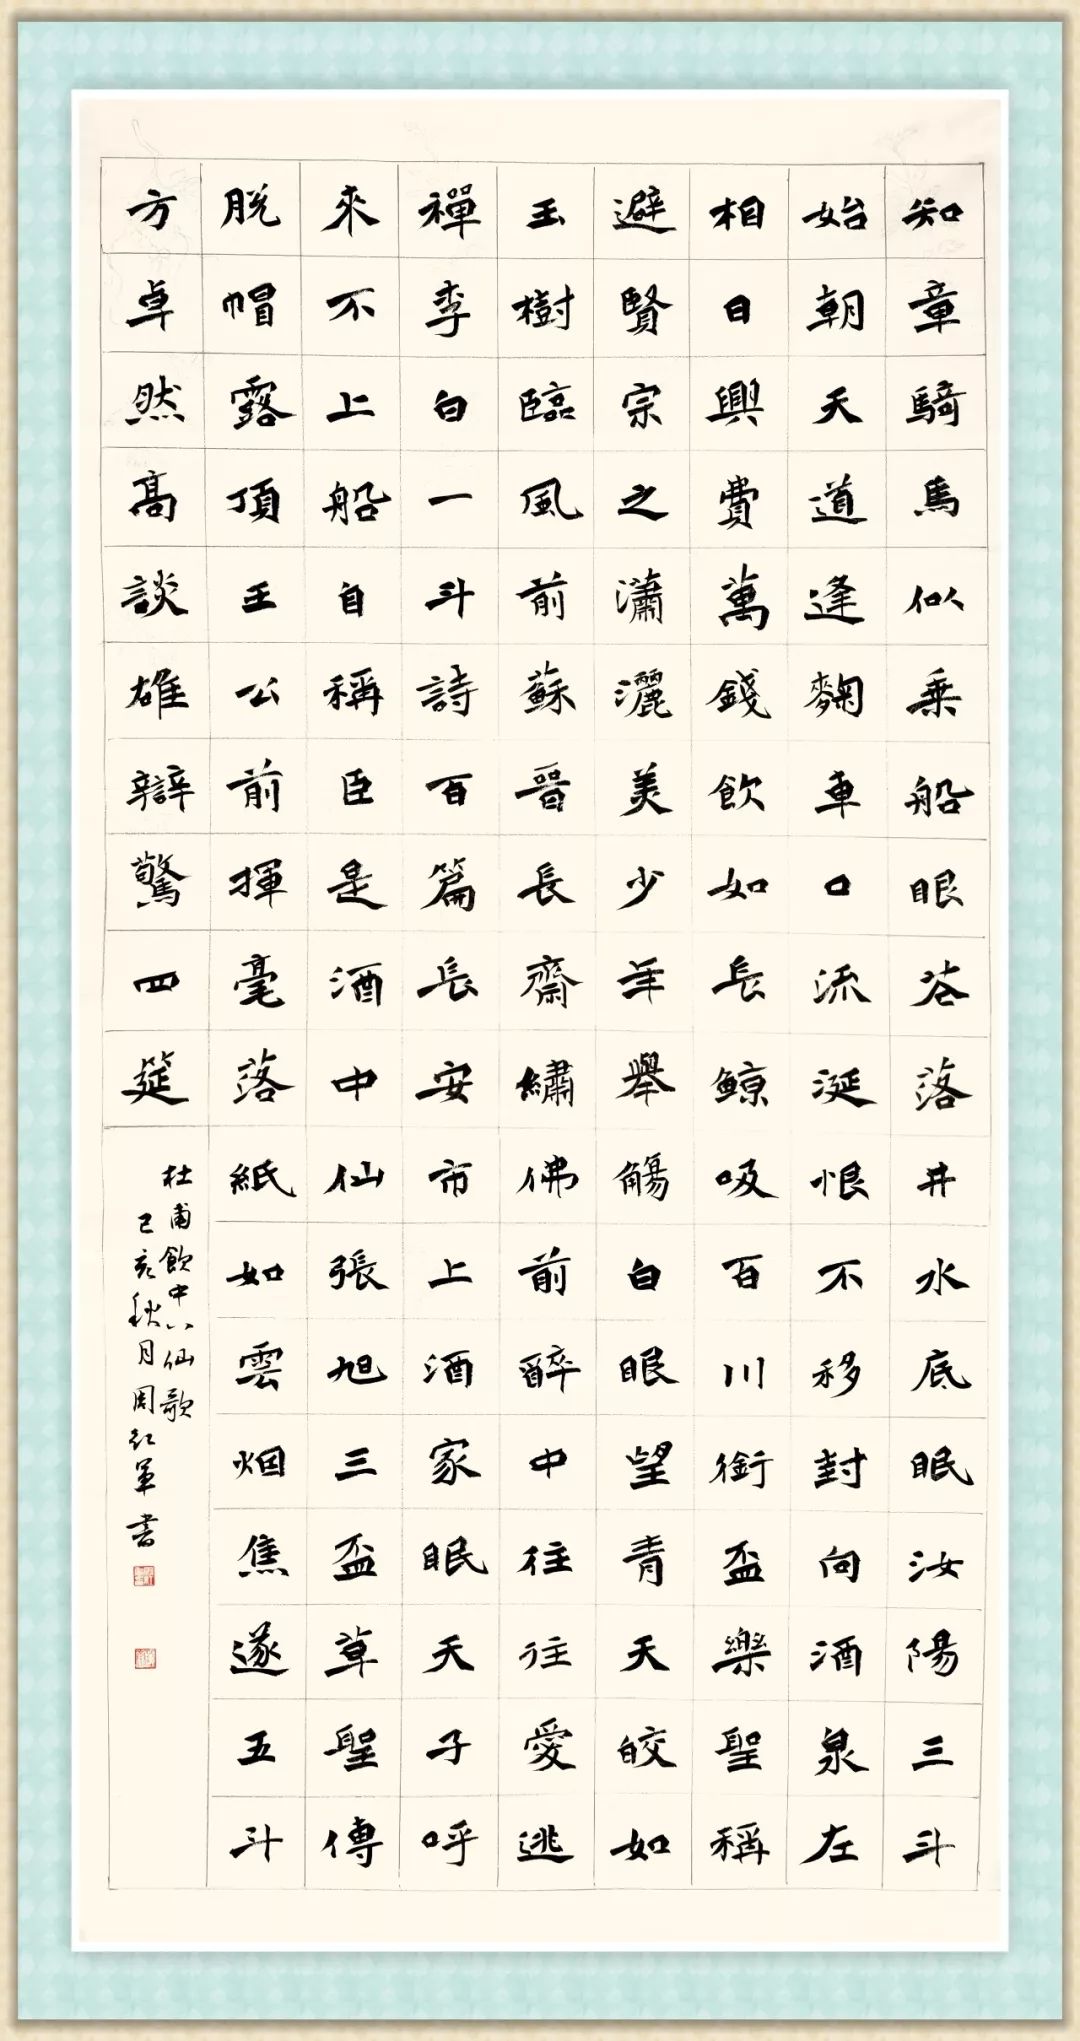 知章騎馬似乗船眼花落井水底眠汝陽三斗
始朝天道逢麴車口流涎恨不移封向酒泉左
相日興費萬錢飲如長鯨吸百川銜盃樂聖稱
避賢宗之瀟灑美少年舉觴白眼望青天皎如
玉樹臨風前蘇晉長齋繡佛前醉中往往愛逃
禪李白一斗詩百篇長安市上酒家眠天子呼
來不上船自稱臣是酒中仙張旭三盃草聖傳
脱帽露頂王公前揮毫落紙如雲烟焦遂五斗
方卓然高談雄辯驚四筵
杜甫飲中八仙歌
己亥秋月周紅軍書